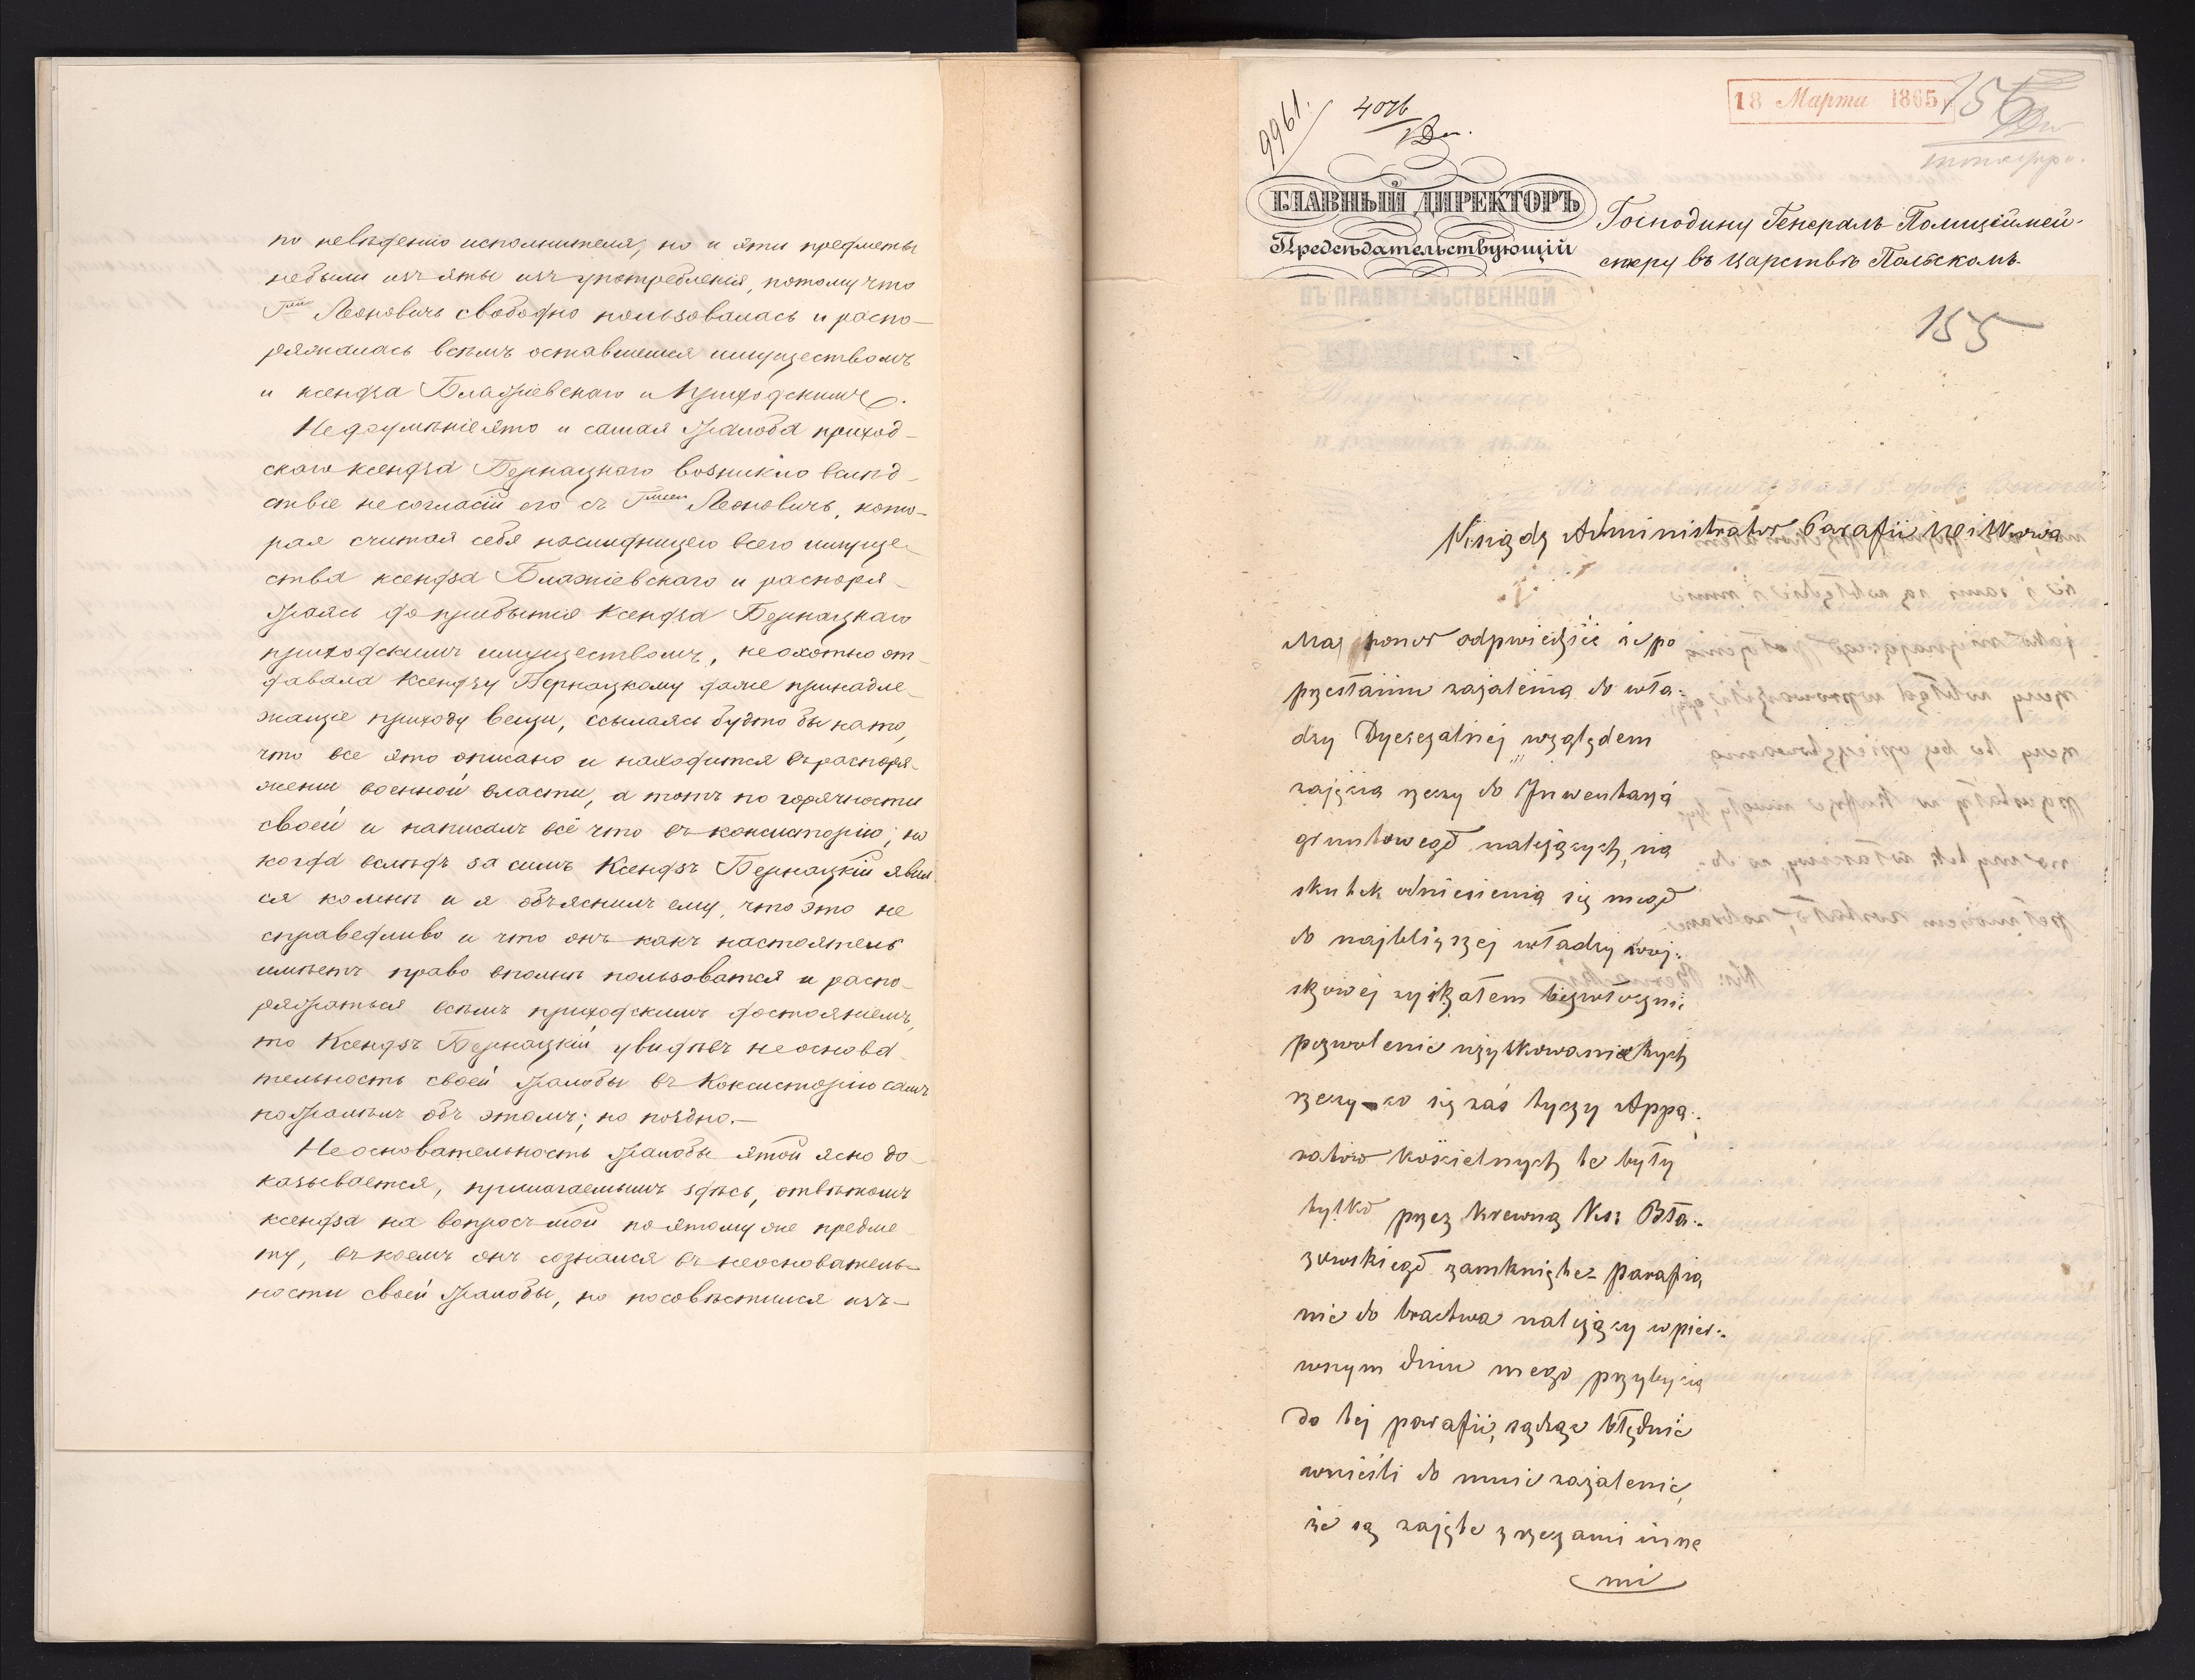 по невѣденію исполнителя, но и эти предметы
небыли изъяты изъ употребленія, потому что
Г-жа Леоновичь свободно пользовалась и распо-
ряжалась всѣмъ оставшемся имуществомъ
и ксендза Блажіевскаго и Приходскимъ.
Недоумѣніе это и самая жалоба приход-
скаго ксендза Бернацкаго возникло вслѣд-
ствіе несогласій его съ Г-жею Леоновичь, кото-
рая считая себя наслѣдницею всего имуще-
ства ксендза Блажіевскаго и распоря-
жаясь до прибытія Ксендза Бернацкаго
приходскимъ имуществомъ, неохотно от-
давала Ксендзу Бернацкому даже принадле-
жащіе приходу вещи, ссылаясь будто бы на то,
что все это описано и находится въ распоря-
женіи военной власти, а тотъ по горячности
своей и написалъ всё что въ консисторію; но
когда вслѣдъ за симъ Ксендзъ Бернацкій явил-
ся ко мнѣ и я объяснилъ ему, что это не
справедливо и что онъ какъ настоятель
имѣетъ право вполнѣ пользоватся и распо-
ряжаться всѣмъ приходскимъ достояніемъ,
то Ксендзъ Бернацкій, увидѣвъ неоснова-
тельность своей жалобы въ Консисторію самъ
пожалѣлъ объ этомъ; но поздно.—
Неосновательность жалобы этой ясно до-
казывается, прилагаемымъ здѣсь, отвѣтомъ
ксендза на вопросъ мой по этому же предме-
ту, въ коемъ онъ сознался въ неоснователь-
ности своей жалобы, но посовѣстился изъ-
9961.
18 Марта 1865
ГЛАВНЫЙ ДИРЕКТОРЪ
Предсѣдательствующій
Господину Генералъ-Полицеймей-
стеру въ Царствѣ Польскомъ.
ВЪ ПРАВИТЕЛЬСТВЕННОЙ
155
Ksiądz Administrator Parafii Witkowa
Ma honor odpwiedzieć iż po
przesłaniu zażalenia do wła-
dzy Dyecezalnej względem
zajęcia rzeczy do Inwentarza
gruntowego należących, na
skutek odniesienia się mego
do najbliższej władzy woj-
skowej zyskałem bezzwłocznie
pozwolenie użytkowania tych
rzeczy - co się zaś tyczy Appa-
ratów kościelnych te były
tylko przez krewną Ks: Bła-
żowskiego zamknięte - parafia
nie do bractwa należący w pier-
wszym dniu mego przybycia
do tej parafii, sądząc błędnie
wnieśli do mnie zażalenie,
że są zajęte z rzeczami inne
mi